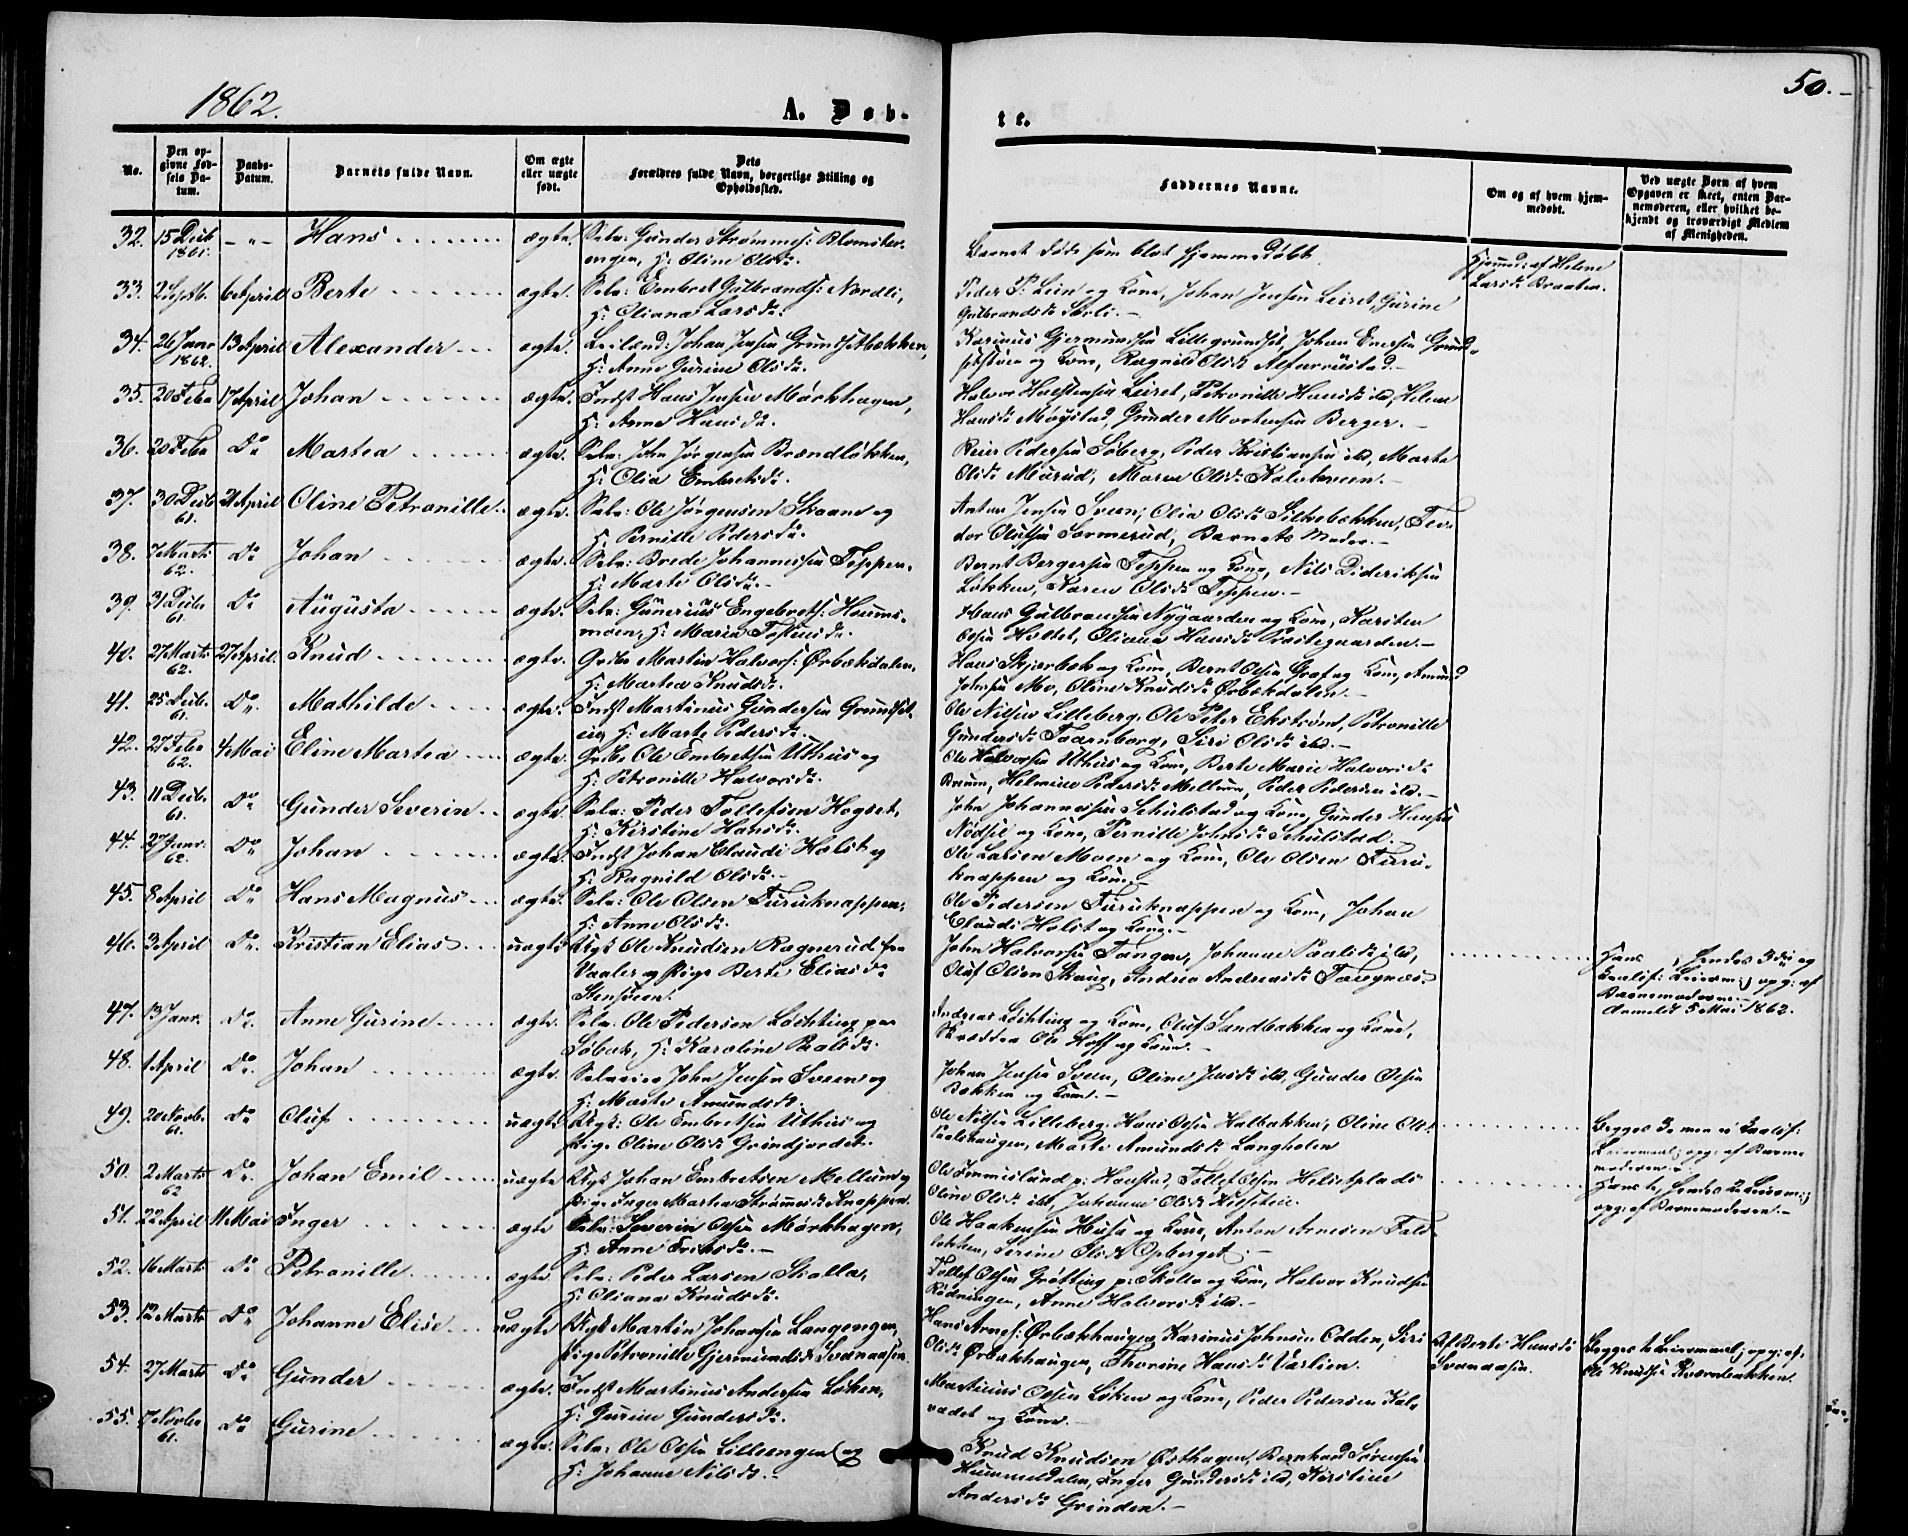 1862.
A. Døb-
te.
50.
No.
Den op-
givne Fød-
sels Da-
tum.
Daabs-
Datum.
Barnets fulde Navn.
Om ægte
eller uægte
født.
Dets
Forældres fulde Navn, borgerlige Stilling og
Opholdssted.
Faddernes Navne.
Om og af hvem hjem-
medøbt.
Ved uægte Børn af hvem
Opgaven er skeet, enten Bar-
nemoderen, eller hvilket be-
kjendt og troværdigt Medlem
af Menigheden.
32. 15 Decb 1861. -"- Hans ægte. Selv: Gunder Strømmes: Blomster-
engen, H: Oline Olsd:
Barnet døde som blot hjemmedøbt
Hjemmed: af Helene
Larsd: Braaten.
33. 2 Septb. 6 April Berte ægte. Selv: Embret Gulbrands: Nordli,
H: Oliana Larsd:
Peder P: Lien og Kone, Johan Jensen Leiret, Gurine
Gulbrandsd: Sorli.-
34. 26 Janr 1862. 13 April Alexander ægte. Johan Jensen Grundsetbækken,
H: Anne Gurine Olsd:
og Kone, Ragnild Olsd:
35. 20 Febr 17 April Johan ægte. Indst Hans Jensen Mørkhagen,
H: Anne Hansd:
Halvor Halstensen Leiret, Petronille Hansd: ibd, Helene
Hansd: Møystad, Gunder Mortensen Berger.-
36. 20 Febr Do Martea ægte. Selv: John Jørgensen Brændløkken,
H: Olia Embretsd:
Reier Pedersen Søberg, Peder Kristiansen ibd, Marte
Olsd: Marud, Maren Olsd:
37. 30 Decb 61. 21 April Oline Petronille ægte. Selv: Ole Jørgensen Skaane og
H: Pernille Pedersd:
Anton Jensen Sveen, Olia Olsd: Silkebækken,
Olufsen Sormerud, Barnets Moder.-
38. 7 Marts 62. Do Johan ægte. Selv: Brede Johannessen Teppen,
H: Marte Olsd:-
Bernt Bergersen Teppen og Kone, Nils Dideriksen
Løkken, Karen Olsd: Teppen.-
39. 31 Decbr 61. Do Augusta ægte. Selv: Gunerius Engebrets:
moen, H: Maria
Hans Gulbrandsen Nygaarden og Kone, Karsten
Olsen Holtet, Oliana Hansd: Præstegaarden.-
40. 27 Marts 62. 27 April. Knud ægte. Grbr Martin Halvors: Ørbækdalen,
H: Martea Knudsd:
Hans Skjærbæk og Kone, Bernt Olsen Graf og Kone, Amund
Johnsen Mo, Oline Knudsd: Ørbækdalen.-
41. 25 Decb. 61. Do Mathilde ægte. Indst Martinus Gundersen Grundset-
H: Marte Pedersd:
Ole Nilsen Lilleberg, Ole Peter Ekstrøm, Petronille
Gundersd: Taarnborg, Siri Olsd: ibd.-
42. 27 Febr 62. 4 Mai Eline Martea ægte. Grbr. Ole Embretsen Uthus og
H: Petronille Halvorsd:
Ole Halvorsen Uthus og Kone, Berte Marie Halvorsd:
Helmine Pedersd: Mellum, Peder Pedersen ibd.-
43. 11 Decb. 61. Do Gunder Severin ægte. Selv: Peder Tollefsen Hogset,
H: Kirstine Hansd:
John Johannessen Schulstad og Kone, Gunder Hansen
Nødset og Kone, Pernille Johnsd: Schulstad.
44. 27 Janr. 62. Do Johan ægte. Indst Johan Claudi Holst og
H: Ragnild Olsd:-
Ole Larsen Moen og Kone, Ole Olsen Furu-
knappen og Kone.-
45. 8 April Do Hans Magnus ægte. Selv: Ole Olsen Furuknappen,
H: Anne Olsd:
Ole Pedersen Furuknappen og Kone, Johan
Claudi Holst og Kone.-
46. 3 April Do. Kristian Elias uægte Ungk Ole Knudsen Ragnerud fra
Vaaler og Pige Berte Eliasd:
Stensveen.
John Halvorsen Tangen, Johanne Paalsd: ibd,
Oluf Olsen Skaug, Andrea Andreasd:
Hans , hendes 3die og
opg: af
Barnemoderen.-
Anmeldt 5 Mai 1862.
47. 13 Janr. Do. Anne Gurine ægte. Selv: Ole Pedersen Løchting paa
Søbak, H: Karoline Paalsd:
Andreas Løchting og Kone, Oluf Sandbakken og Kone,
Skrædder Ole Hoff og Kone.-
48. 1 April Do. Johan ægte. John Jensen Sveen og
H: Marte Amundsd:
Johan Jensen Sveen, Oline Jensd: ibd, Gunder Olsen
Bækken og Kone.-
49. 20 Novb. 61. Do Oluf uægte Ungk: Ole Embretsen Uthus og
Pige Oline Olsd: Grindjordet.
Ole Nilsen Lilleberg, Hans Olsen Halbakken, Oline Ols:
Paalshaugen, Marte Amundsd: Langholen
Begges 3.
Leiermaal; opg: af Barne-
moderen.-
50. 2 Marts 62 Do. Johan Emil uægte Ungk Johan Embretsen Mellum og
Pige Inger Martha Strømsd: Knappen.
Tollef Olsen
Oline Olsd: ibd, Johanne Olsd:
Hans 1te, hendes 2 Leierm;
opg: af Barnemoderen.-
51. 22 April 11 Mai Inger ægte Selv: Severin Olsen Mørkhagen,
H: Anne Eriksd:-
Ole Haakensen Husa og Kone, Anton Arnesen Fald-
løkken, Serine Olsd: Opberget.-
52. 16 Marts Do Petronille ægte Selv: Peder Larsen Skalla,
H: Oliana Knudsd:
Tollef Olsen Grøtting p: Skalla og Kone, Halvor Knudsen
Rødningen, Anne Halvorsd: ibd.-
53. 12 Marts Do Johanne Elise uægte Ungk Martin Johansen Langengen,
Pige Petronille Gjermundsd: Svenaasen
Hans Arnes: Ørbækhaugen, Karinus Johnsen Odden, Siri
Olsd: Ørbækhaugen, Thorine Hansd: Varlien.
Af Berte Hansd:
Svenaasen.
Begges 1te Leiermaal; opg: af
Ole Knudsen Kværnbækken.
54. 27 Marts Do Gunder ægte. Indst Martinus Andersen Løken,
H: Gurine Gundersd:
Martinus Olsen Løken og Kone, Peder Pedersen Kal-
vadet og Kone.-
55. 17 Novbr 61. Do Gurine ægte. Selv: Ole Olsen Lilleengen og
H: Johanne Nilsd:-
Knud Knudsen Østhagen, Bernhard Sørensen
Hummeldalen, Inger Gundersd: ibd, Kirstine
Andersd: Grinden.-